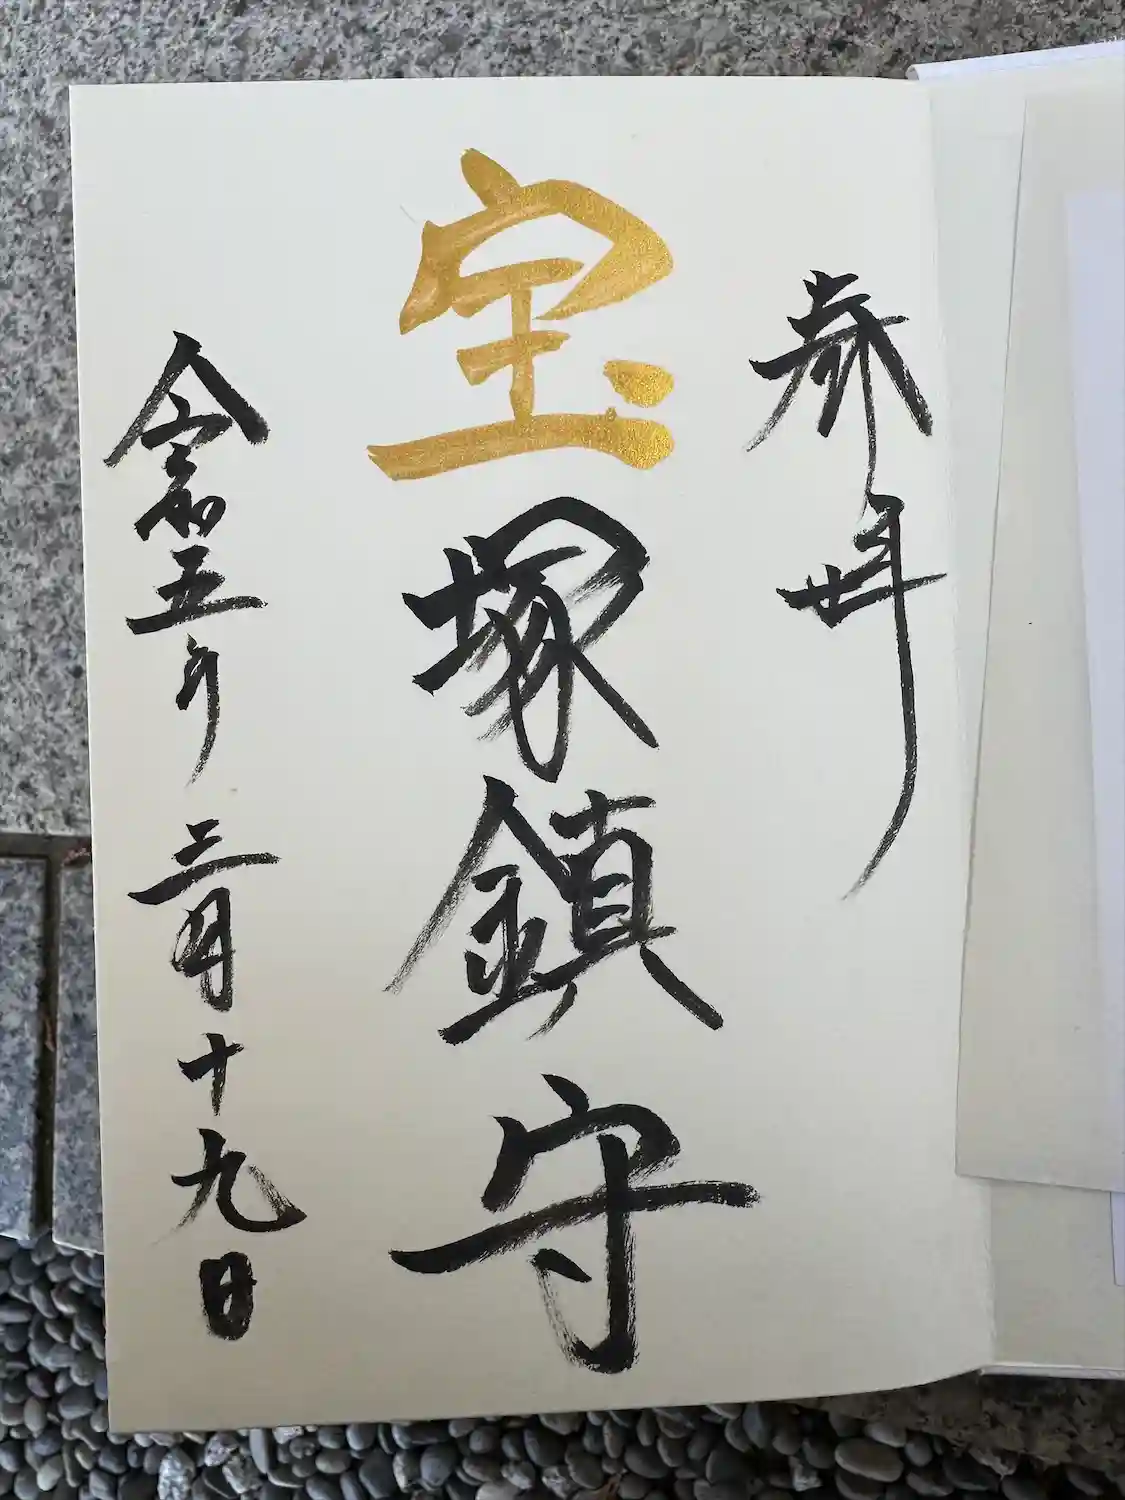 参拝
宝塚鎮守
令和五年三月十九日